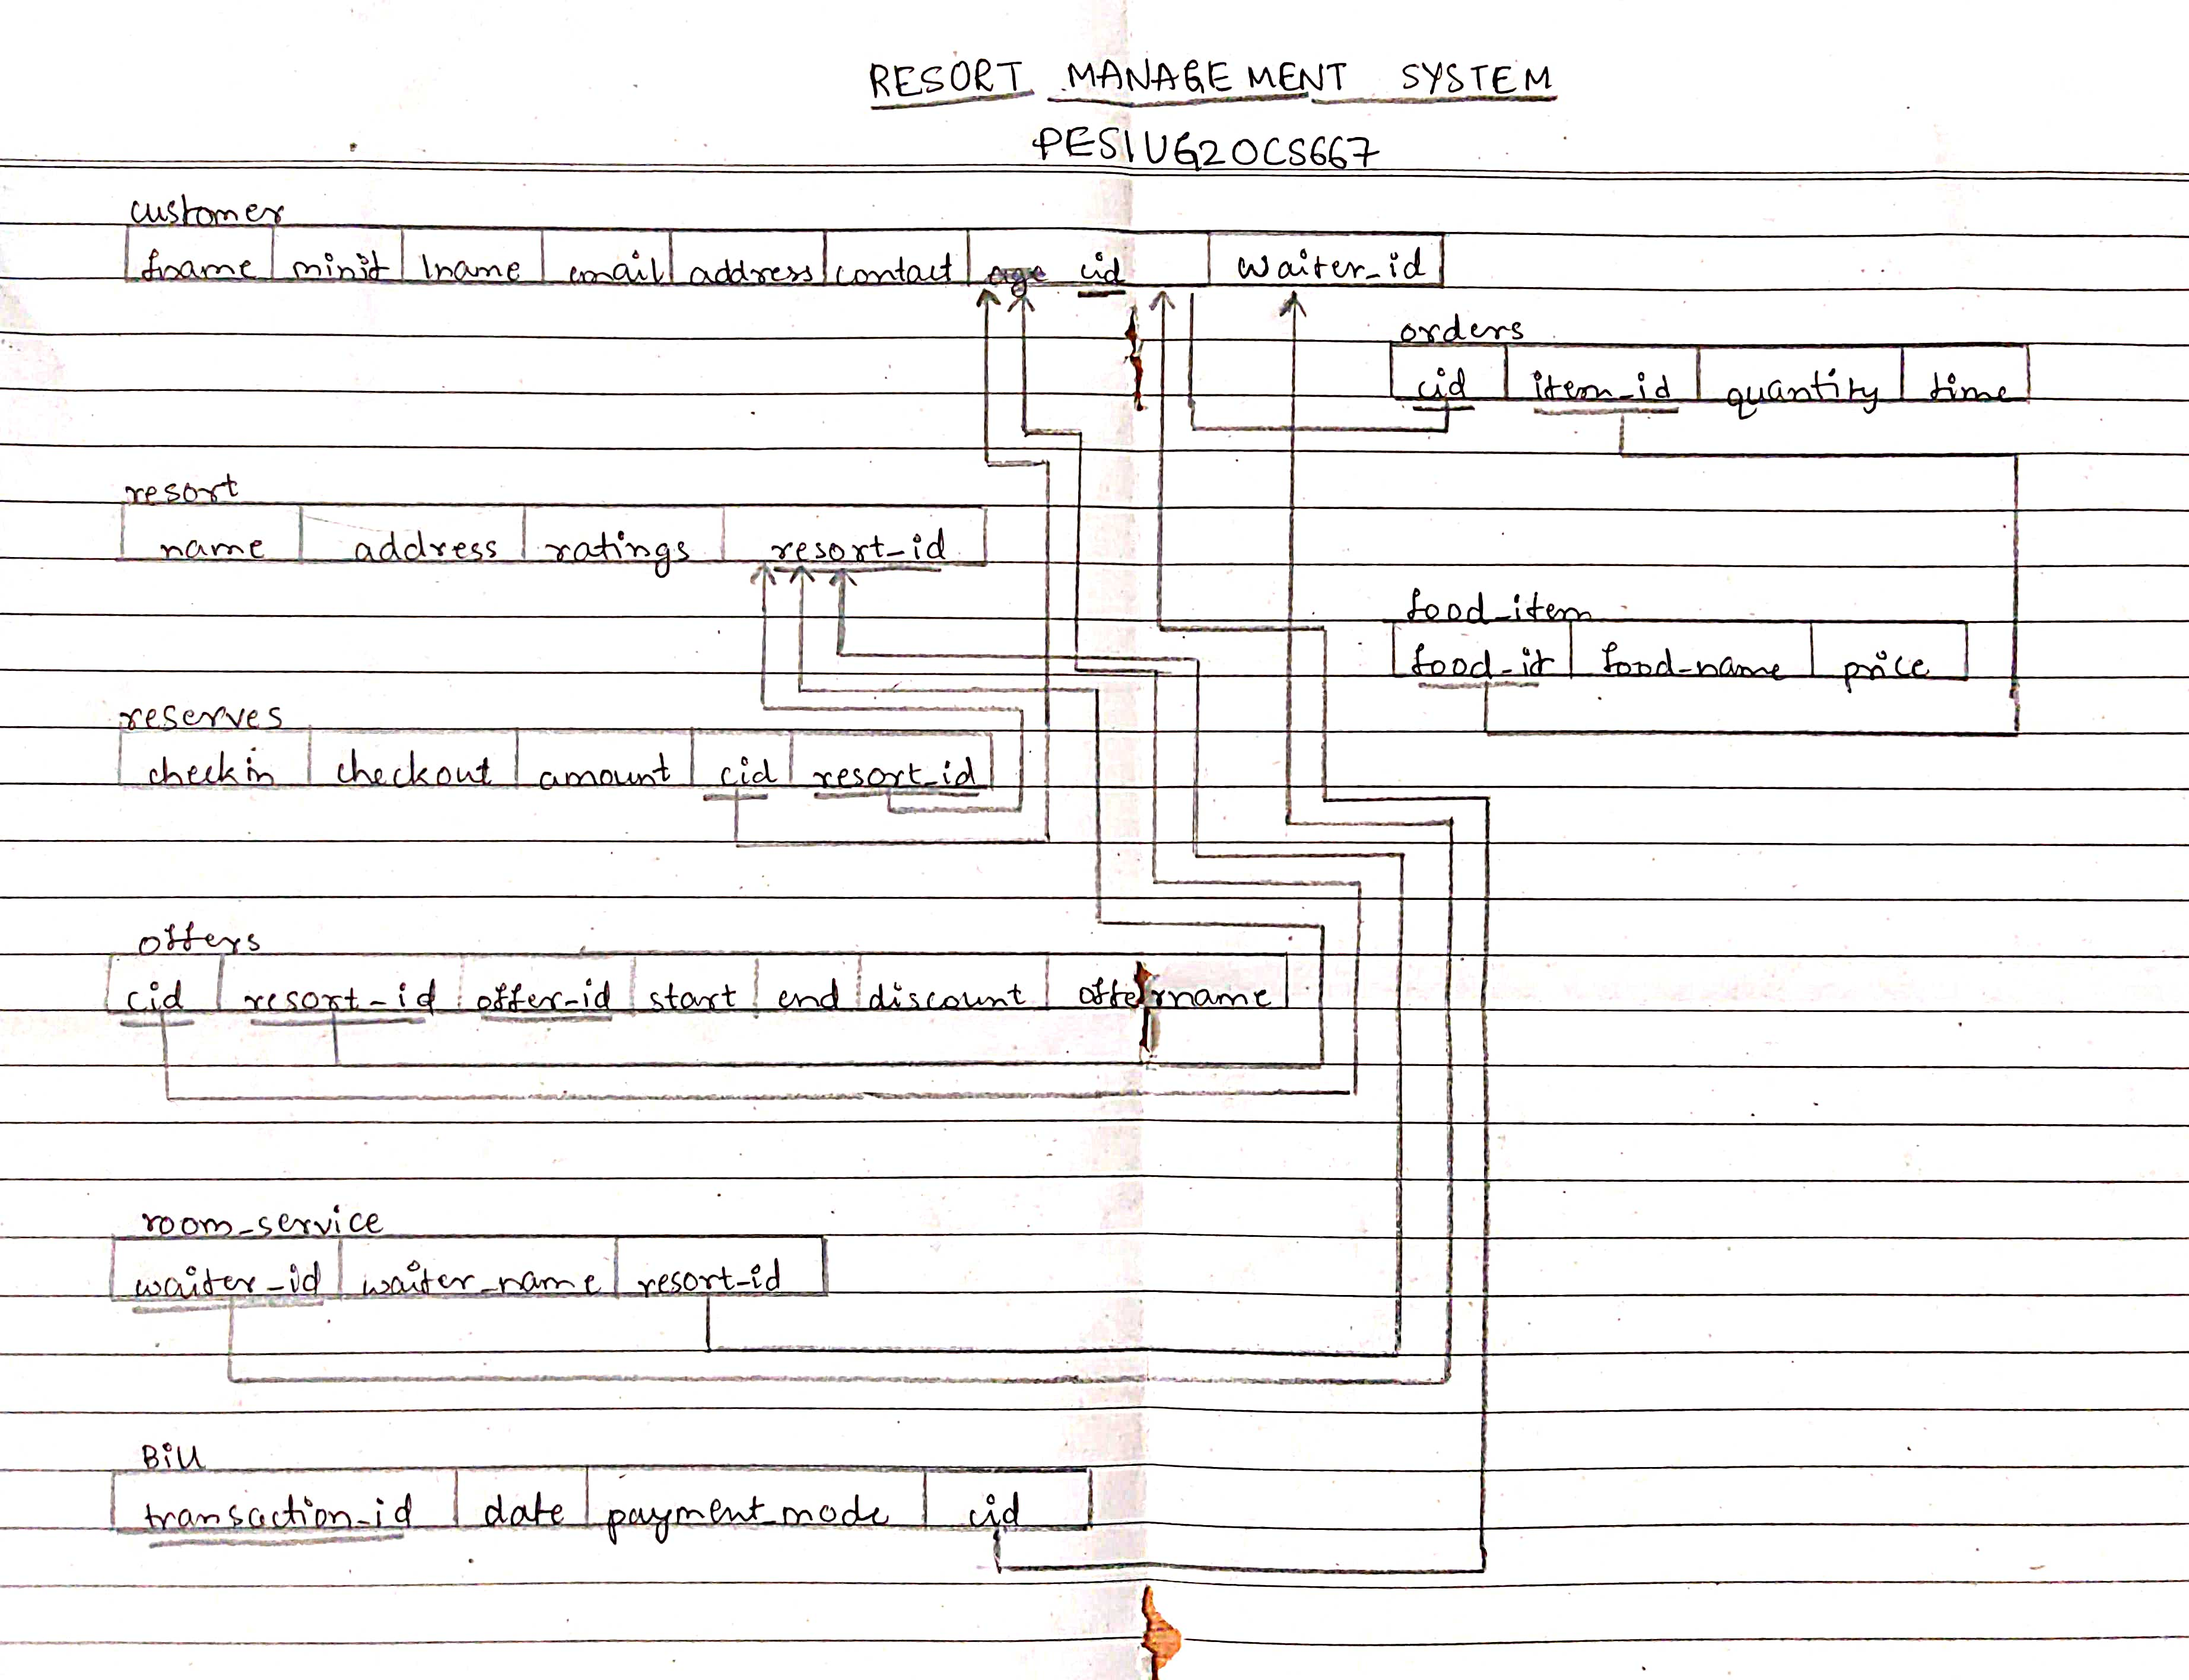 RESORT MANAGEMENT SYSTEM
PES1UG20CS667
customer
fname minit lname email address contact cid waiter_id
orders
cid item_id quantity time
resort
name address ratings resort_id
food_item
food_id food_name price
reserves
checkin checkout amount cid resort_id
offers
cid resort_id offer_id start end discount offer name
room_service
waiter_id waiter_name resort_id
Bill
transaction_id date payment_mode cid